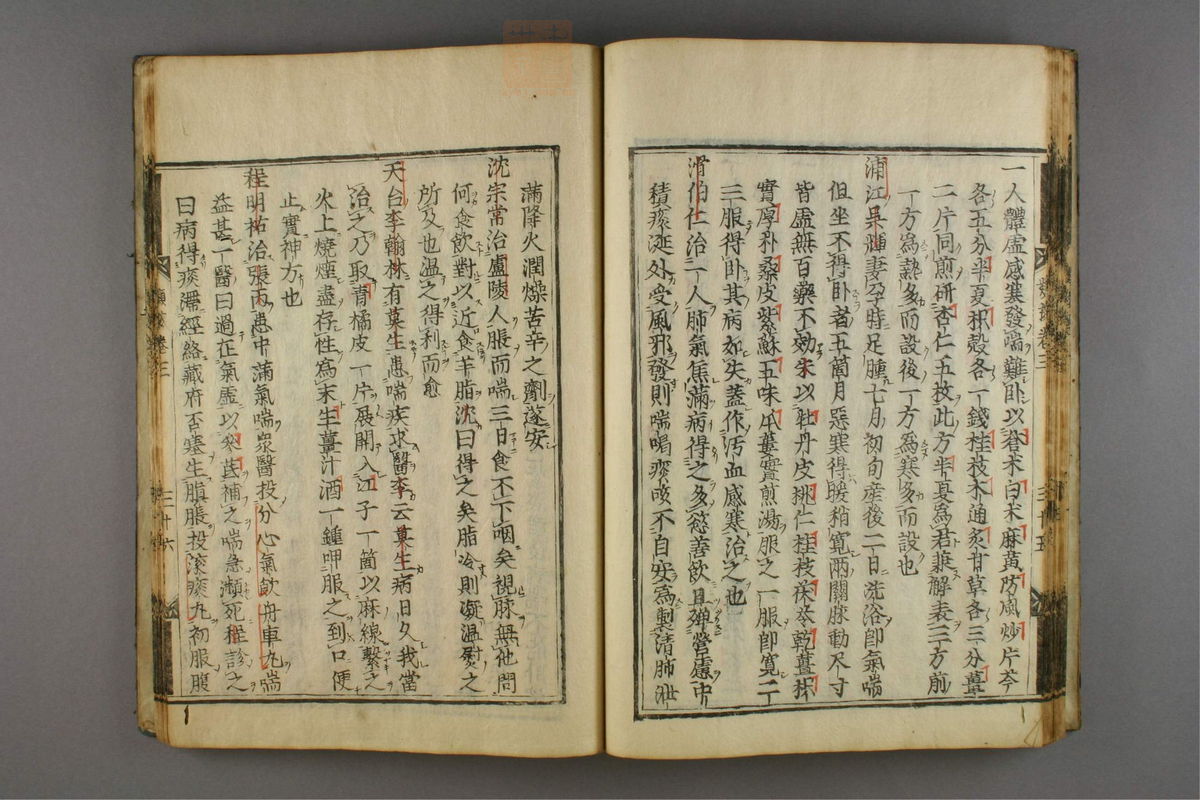 一人體虛感寒發喘難卧以蒼朮白朮麻黃防風炒片芩
各五分半夏枳殼各一錢桂枝木通炙甘草各三分薑
二片同煎研杏仁五枚此方半夏為君兼解表二方前
一方為熱多而設後一方為寒多而設也
浦江吳輝妻孕時足腫七月初旬産後二日洗浴卽氣喘
但坐不得卧者五箇月惡寒得暖稍寬兩關脉動尺寸
皆虛無百藥不効朱以牡丹皮桃仁桂枝茯苓乾薑枳
實厚朴桑皮紫蘇五味瓜蔞實煎湯服之一服卽寬二
三服得卧其病如失蓋作汚血感寒治之也
滑伯仁治一人肺氣焦滿病得之多慾善飲且殫營慮中
積痰涎外受風邪發則喘喝痰咳不自安為製清肺泄
滿降火潤燥苦辛之劑遂安
沈宗常治廬陵人脹而喘三日食不下咽矣視脉無他問
何食飲對以近食羊脂沈曰得之矣脂冷則凝温熨之
所及也温之得利而愈
天台李翰林有莫生患喘疾求醫李云莫生病日久我當
治之乃取青橘皮一片展開入江子一箇以麻線繫之
火上燒煙盡存性為末生薑汁酒一鍾呷服之到口便
止實神方也
程明祐治張丙患中滿氣喘眾醫投分心氣飲舟車丸喘
益甚一醫曰過在氣虛以參芪補之喘急瀕死程診之
曰病得痰滯經絡藏府否塞生䐜脹投滾痰丸初服腹
類案卷三
三十五
類案卷三
三十六